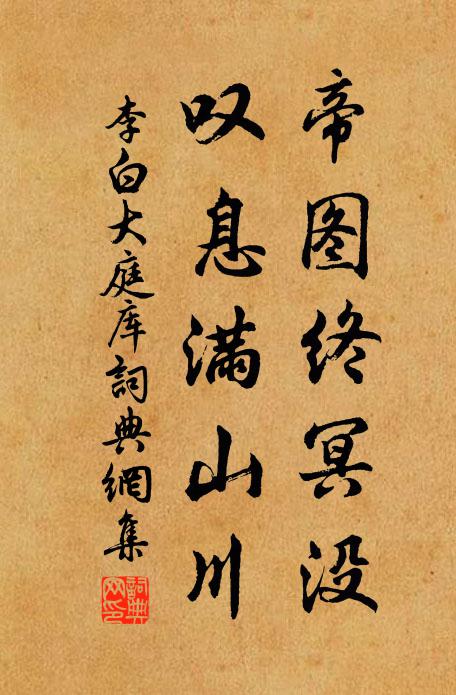 帝图终冥没
叹息满山川
李白大庭库詞典網集
詞典网印